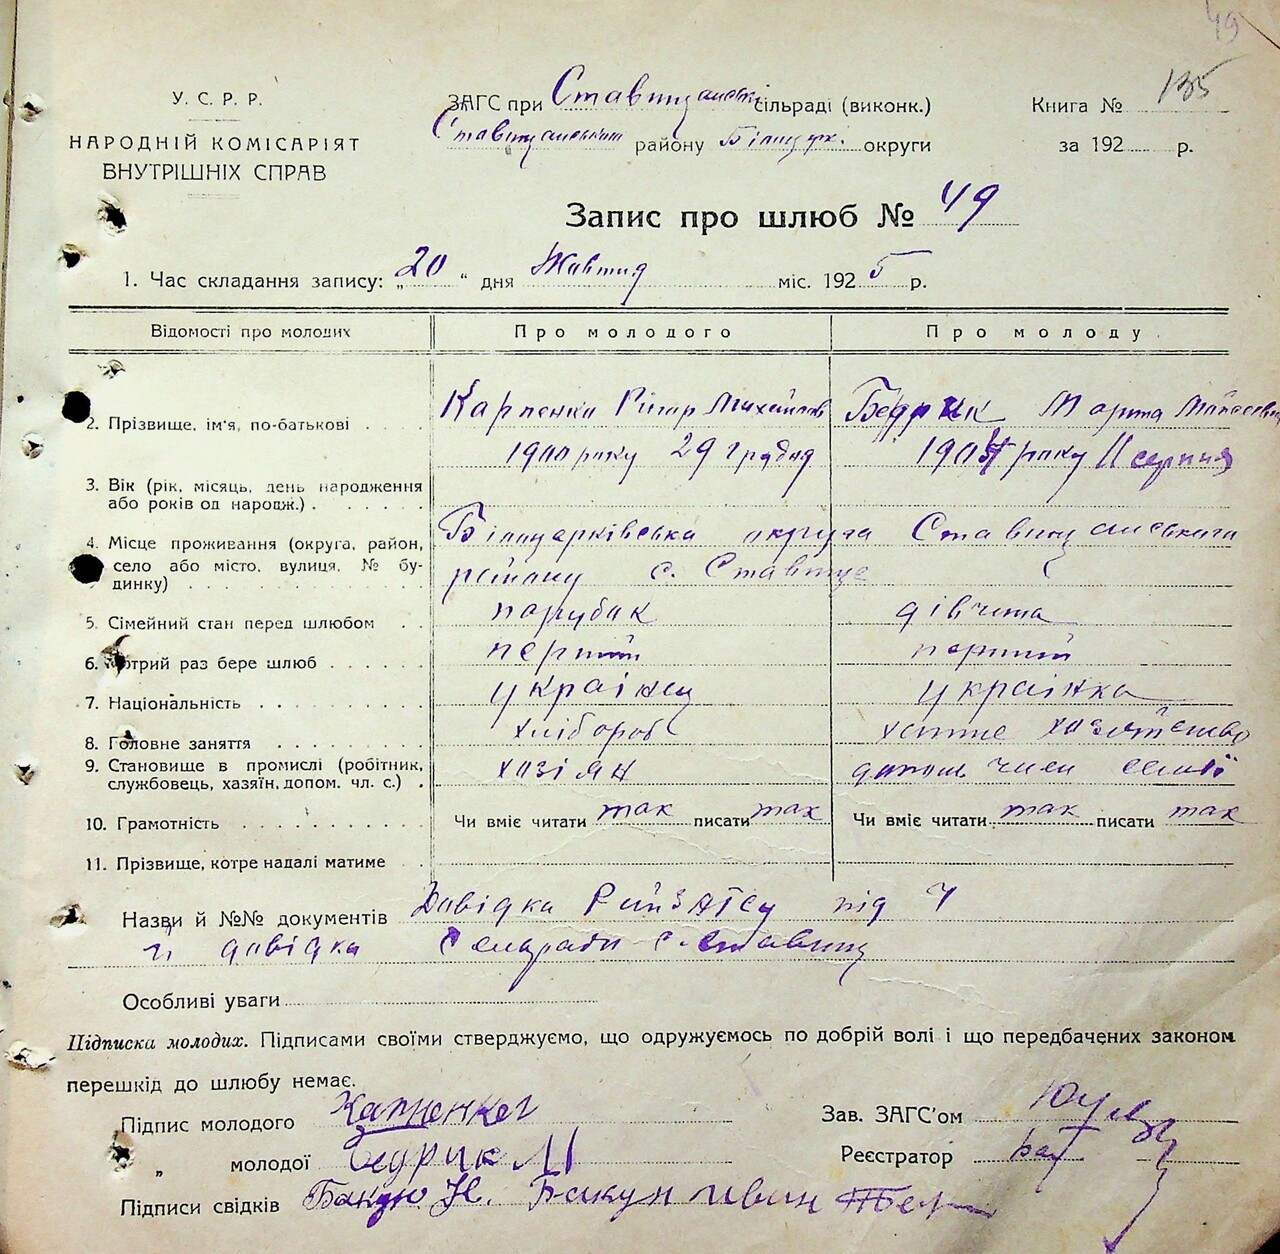 49
У. С. Р. Р.
НАРОДНІЙ КОМІСАРІЯТ
ВНУТРІШНІХ СПРАВ
ЗАГС при Ставищанськ сільраді (виконк.)
Ставищанськім району Білоцерк. округи
Книга № 135
за 192 р.
Запис про шлюб № 49
1. Час складання запису: „20“ дня Жовтня міс. 1925 р.
Відомості про молодих Про молодого Про молоду
2. Прізвище, ім'я, по-батькові Карпенко Михайлов Бедрик Марта
3. Вік (рік, місяць, день народження або років од народж.) 1900 року 29 грудня року 11 серпня
4. Місце проживання (округа, район, село або місто, вулиця, № будинку) Білоцерківська округа Ставищанського
району с. Ставище
5. Сімейний стан перед шлюбом парубок дівчина
6. Котрий раз бере шлюб перший перший
7. Національність українец українка
8. Головне заняття хлібороб хатнє хазяйство
9. Становище в промислі (робітник, службовець, хазяїн, допом. чл. с.) хазіян допом член семьї
10. Грамотність Чи вміє читати так писати так Чи вміє читати так писати так
11. Прізвище, котре надалі матиме
Назви й №№ документів Довідка під
довідка Сельради с. Ставищ
Особливі уваги
Підписка молодих. Підписами своїми стверджуємо, що одружуємось по добрій волі і що передбачених законом
перешкід до шлюбу немає.
Підпис молодого Карпенко
Зав. ЗАГС'ом
„ молодої Бедрик М
Реєстратор
Підписи свідків Бакун Н. Бакун Иван